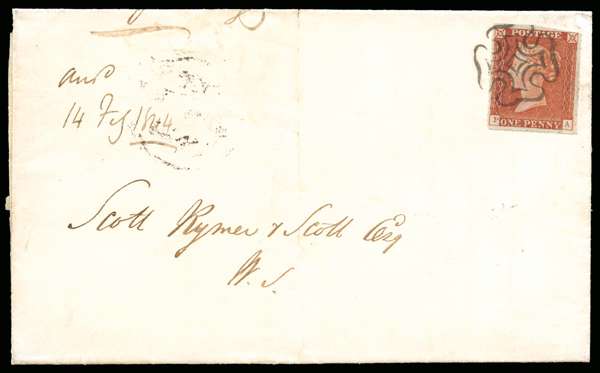 POSTAGE
ONE PENNY
A
14 Feby 1844
Scott Rymer & Scott Esq
W. S.